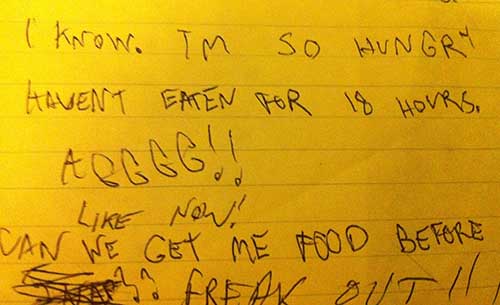 I KNOW. I'M SO HUNGRY
HAVENT EATEN FOR 18 HOURS.
ARGGGG!!
LIKE NOW!
CAN WE GET ME FOOD BEFORE
?? FREAK OUT!!